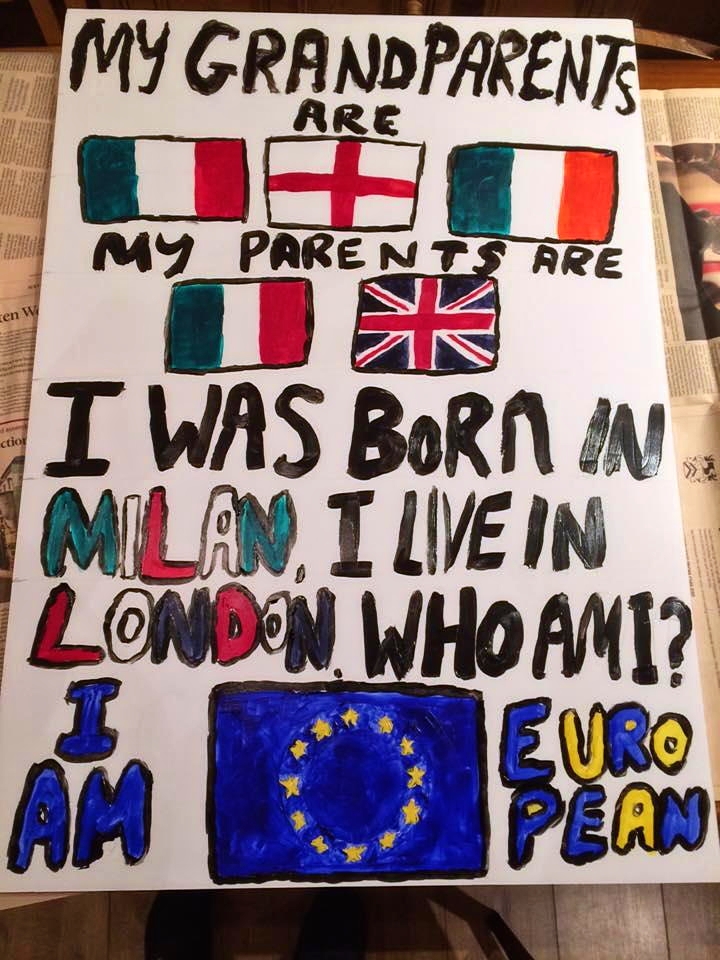 MY GRANDPARENTS
ARE
MY PARENTS ARE
I WAS BORN IN
MILAN, I LIVE IN
LONDON. WHO AM I?
I
AM
EURO
PEAN